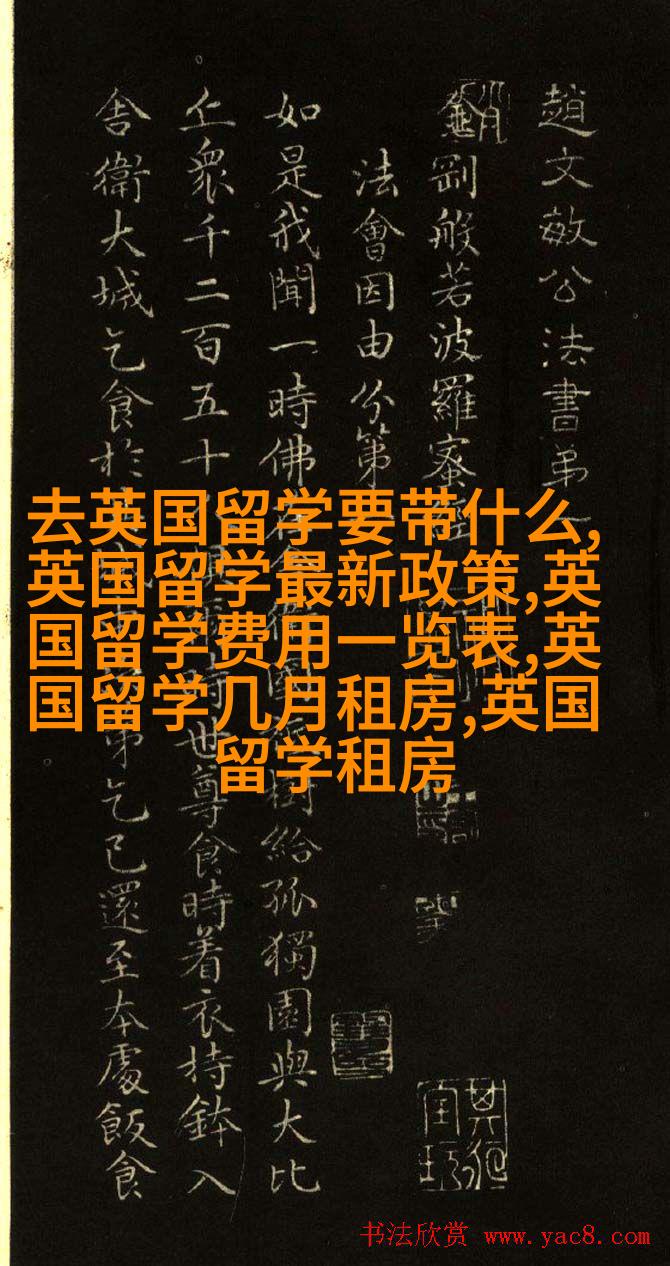 趙文敏公法書弟
金剛般若波羅蜜經
法會因由分第
如是我聞一時佛在舍衛國祇樹給孤獨園與大比
丘眾千二百五十人俱爾時世尊食時着衣持鉢入
舍衛大城乞食於其城中次第乞已還至本處飯食
去英国留学要带什么,
英国留学最新政策,英
国留学费用一览表,英
国留学几月租房,英国
留学租房
书法欣赏 www.yac8.com